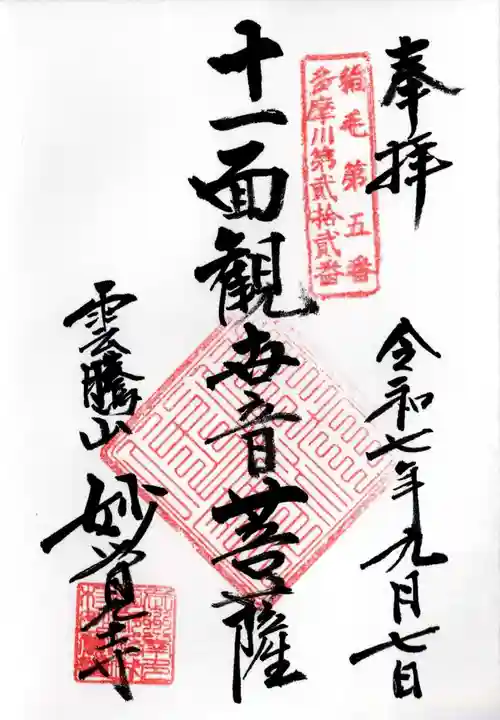 奉拝
稲毛第五番
多摩川第貳拾貳番
十一面観世音菩薩
令和七年九月七日
雲騰山
妙覚寺